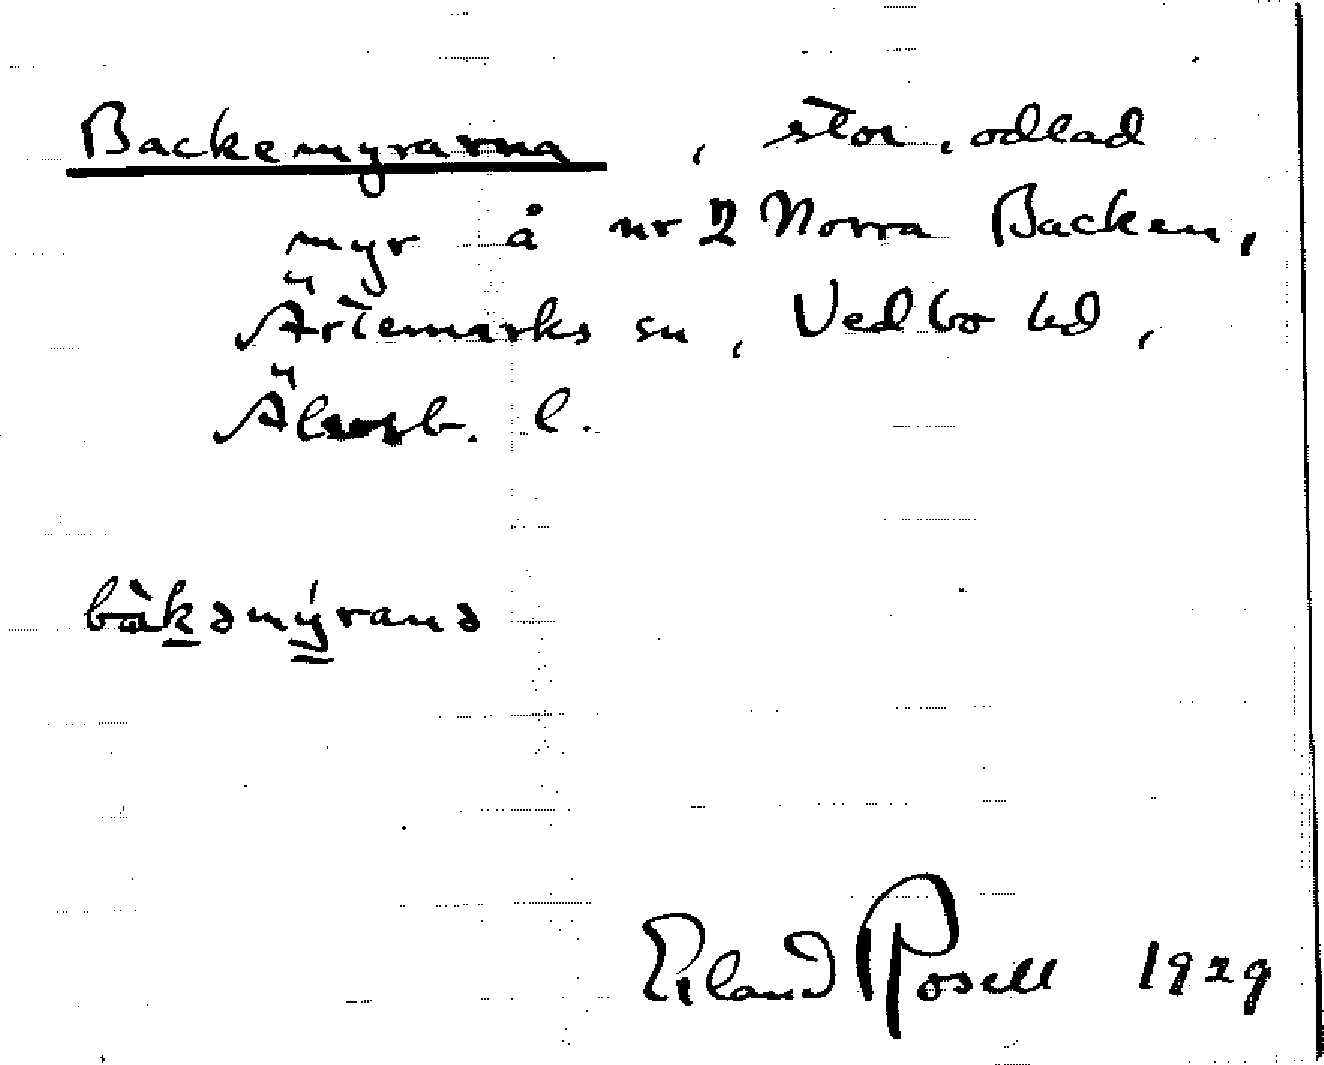 Backemyrarna, stor, odlad
myr å nr 2 Norra Backen,
Ärtemarks sn, Vedbo hd,
Älvsb. l.
bàkəmýranə
Erland Rosell 1929